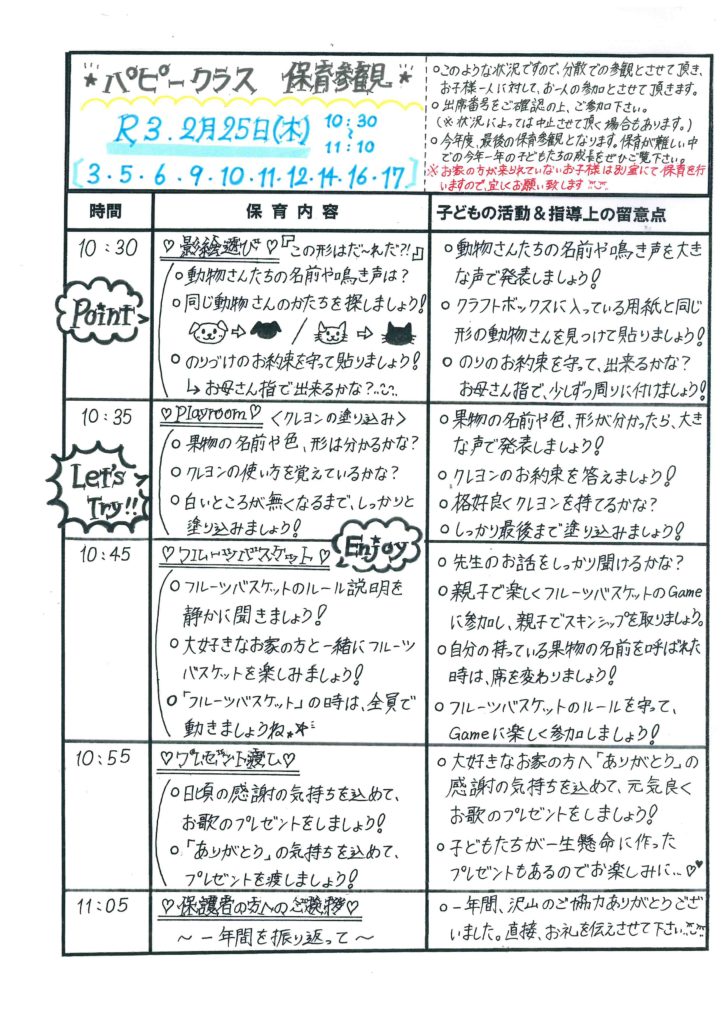 *パピークラス 保育参観*
R3.2月25日(木) 10:30〜11:10
〔3・5・6・9・10・11・12・14・16・17〕
○このような状況ですので、分散での参観とさせて頂き、
お子様一人に対して、お一人の参加とさせて頂きます。
○出席番号をご確認の上、ご参加下さい。
(※状況によっては中止させて頂く場合もあります。)
○今年度、最後の保育参観となります。保育が難しい中
での今年一年の子どもたちの成長をぜひご覧下さい。
※お家の方が来られていないお子様は別室にて保育を行
いますので、宜しくお願い致します
時間 保育内容 子どもの活動&指導上の留意点
10:30
Point
♡影絵遊び♡『この形はだ〜れだ?!』
○動物さんたちの名前や鳴き声は?
○同じ動物さんのかたちを探しましょう!
⇨ / ⇨
○のりづけのお約束を守って貼りましょう!
↳お母さん指で出来るかな?
○動物さんたちの名前や鳴き声を大き
な声で発表しましょう!
○クラフトボックスに入っている用紙と同じ
形の動物さんを見つけて貼りましょう!
○のりのお約束を守って、出来るかな?
お母さん指で、少しずつ周りに付けましょう!
10:35
Let's
Try!!
♡Playroom♡〈クレヨンの塗り込み〉
○果物の名前や色、形は分かるかな?
○クレヨンの使い方を覚えているかな?
○白いところが無くなるまで、しっかりと
塗り込みましょう!
○果物の名前や色、形が分かったら、大き
な声で発表しましょう!
○クレヨンのお約束を答えましょう!
○格好良くクレヨンを持てるかな?
○しっかり最後まで塗り込みましょう!
10:45
♡フルーツバスケット♡
Enjoy
○フルーツバスケットのルール説明を
静かに聞きましょう!
○大好きなお家の方と一緒にフルーツ
バスケットを楽しみましょう!
○「フルーツバスケット」の時は、全員で
動きましょうね
○先生のお話をしっかり聞けるかな?
○親子で楽しくフルーツバスケットのGame
に参加し、親子でスキンシップを取りましょう。
○自分の持っている果物の名前を呼ばれた
時は、席を変わりましょう!
○フルーツバスケットのルールを守って、
Gameに楽しく参加しましょう!
10:55
♡プレゼント渡し♡
○日頃の感謝の気持ちを込めて、
お歌のプレゼントをしましょう!
○「ありがとう」の気持ちを込めて、
プレゼントを渡しましょう!
○大好きなお家の方へ「ありがとう」の
感謝の気持ちを込めて、元気良く
お歌のプレゼントをしましょう!
○子どもたちが一生懸命に作った
プレゼントもあるのでお楽しみに…♡♥
11:05
♡保護者の方へのご挨拶♡
〜一年間を振り返って〜
○一年間、沢山のご協力ありがとうござ
いました。直接、お礼を伝えさせて下さい